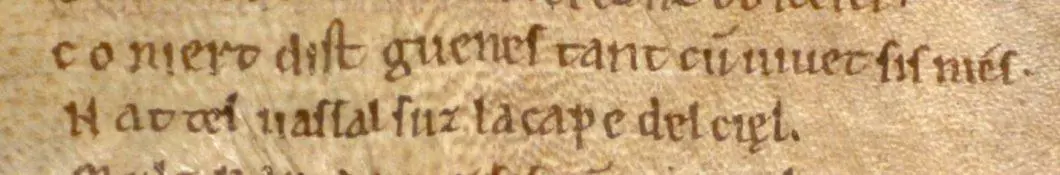 Co n iert dist guenes tant cū uiuet sis niés.
N at tel uassal suz la cape del ciel.